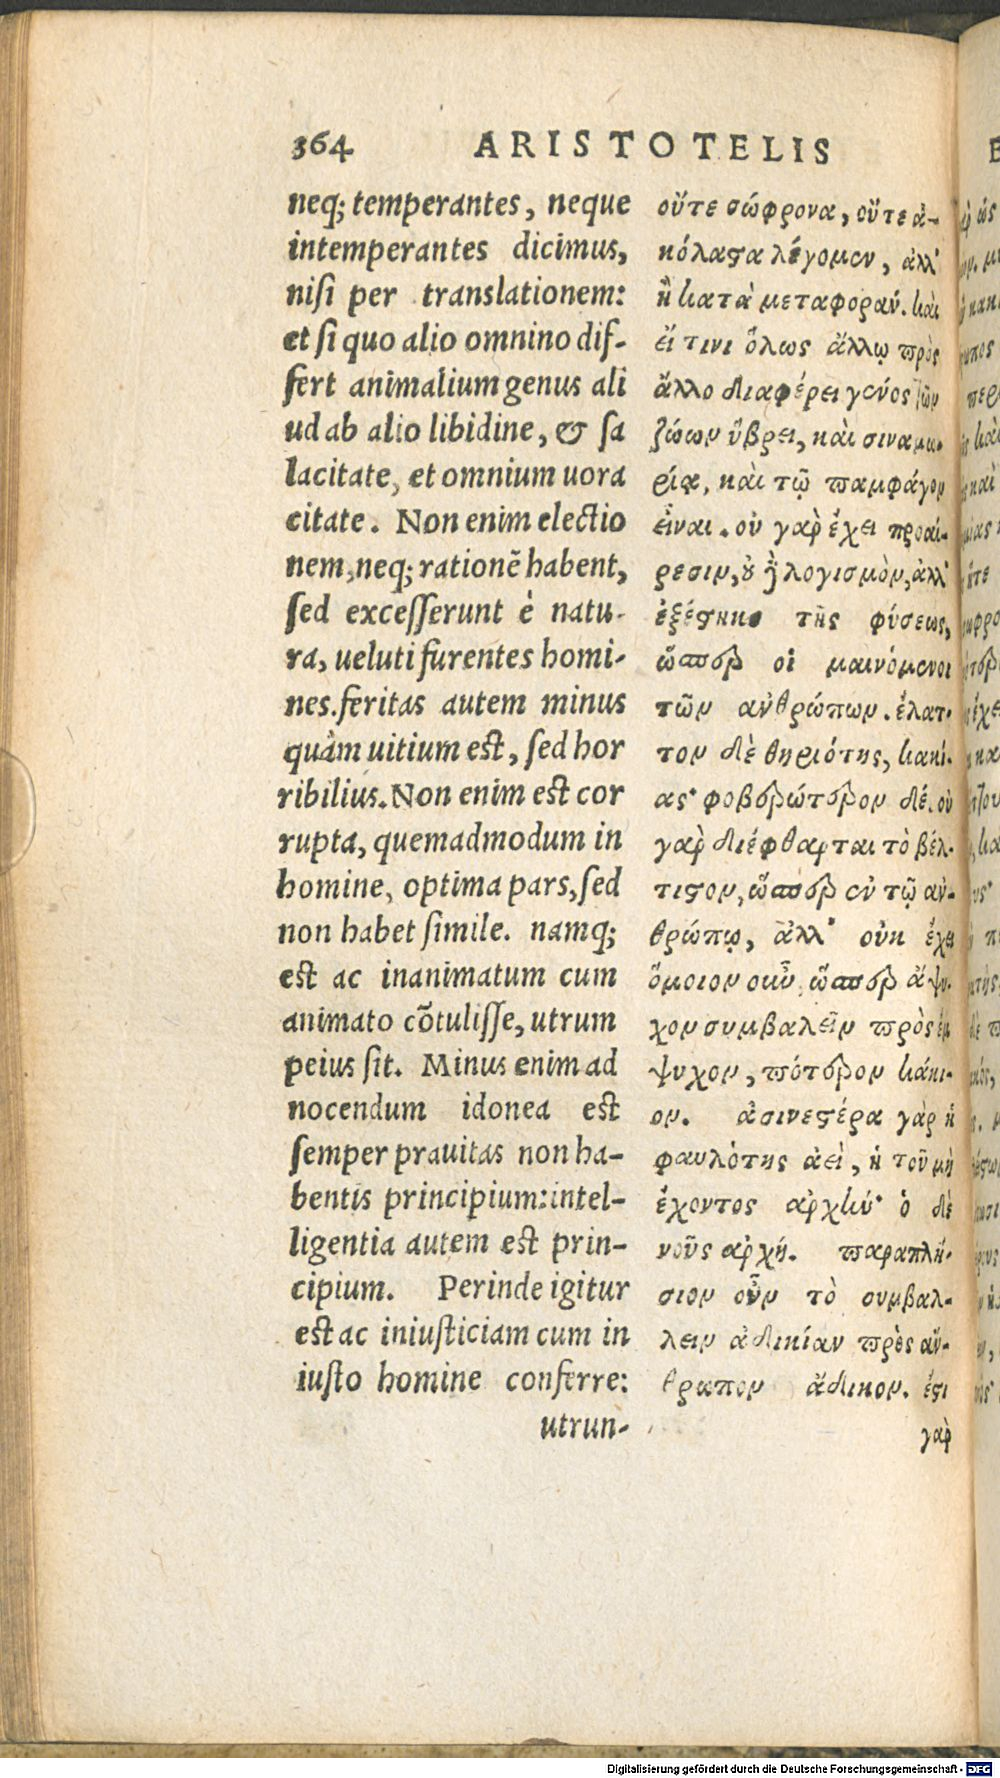 364 ARISTOTELIS
neq; temperantes, neque
intemperantes dicimus,
nisi per translationem:
et si quo alio omnino dif-
fert animalium genus ali
ud ab alio libidine, & sa
lacitate, et omnium uora
citate. Non enim electio
nem, neq; rationẽ habent,
sed excesserunt è natu-
ra, ueluti furentes homi-
nes. feritas autem minus
quàm uitium est, sed hor
ribilius. Non enim est cor
rupta, quemadmodum in
homine, optima pars, sed
non habet simile. namq;
est ac inanimatum cum
animato cõtulisse, utrum
peius sit. Minus enim ad
nocendum idonea est
semper prauitas non ha-
bentis principium: intel-
ligentia autem est prin-
cipium. Perinde igitur
est ac iniusticiam cum in
iusto homine conferre:
utrun-
οὔτε σώφρονα, οὔτε ἀ-
κόλαστα λέγομεν, ἀλλ'
ἢ κατὰ μεταφοράν. καὶ
εἴ τινι ὅλως ἄλλῳ πρὸς
ἄλλο διαφέρει γένος τῶν
ζώων ὕβρει, καὶ σιναμω-
ρίᾳ, καὶ τῷ παμφάγον
εἶναι. οὐ γὰρ ἔχει προαί-
ρεσιν, οὐδὲ λογισμὸν, ἀλλ'
ἐξέστηκε τῆς φύσεως,
ὥσπερ οἱ μαινόμενοι
τῶν ἀνθρώπων. ἔλατ-
τον δὲ θηριότης, κακί-
ας· φοβερώτερον δέ. οὐ
γὰρ διέφθαρται τὸ βέλ-
τιστον, ὥσπερ ἐν τῷ ἀν-
θρώπῳ, ἀλλ' οὐκ ἔχει
ὅμοιον οὖν, ὥσπερ ἄψυ-
χον συμβαλεῖν πρὸς ἔμ
ψυχον, πότερον κάκι-
ον. ἀσινεστέρα γὰρ ἡ
φαυλότης ἀεὶ, ἡ τοῦ μὴ
ἔχοντος ἀρχήν· ὁ δὲ
νοῦς ἀρχή. παραπλή-
σιον οὖν τὸ συμβαλ-
λειν ἀδικίαν πρὸς ἄν-
θρωπον ἄδικον. ἔστι
γὰρ
Digitalisierung gefördert durch die Deutsche Forschungsgemeinschaft - DFG